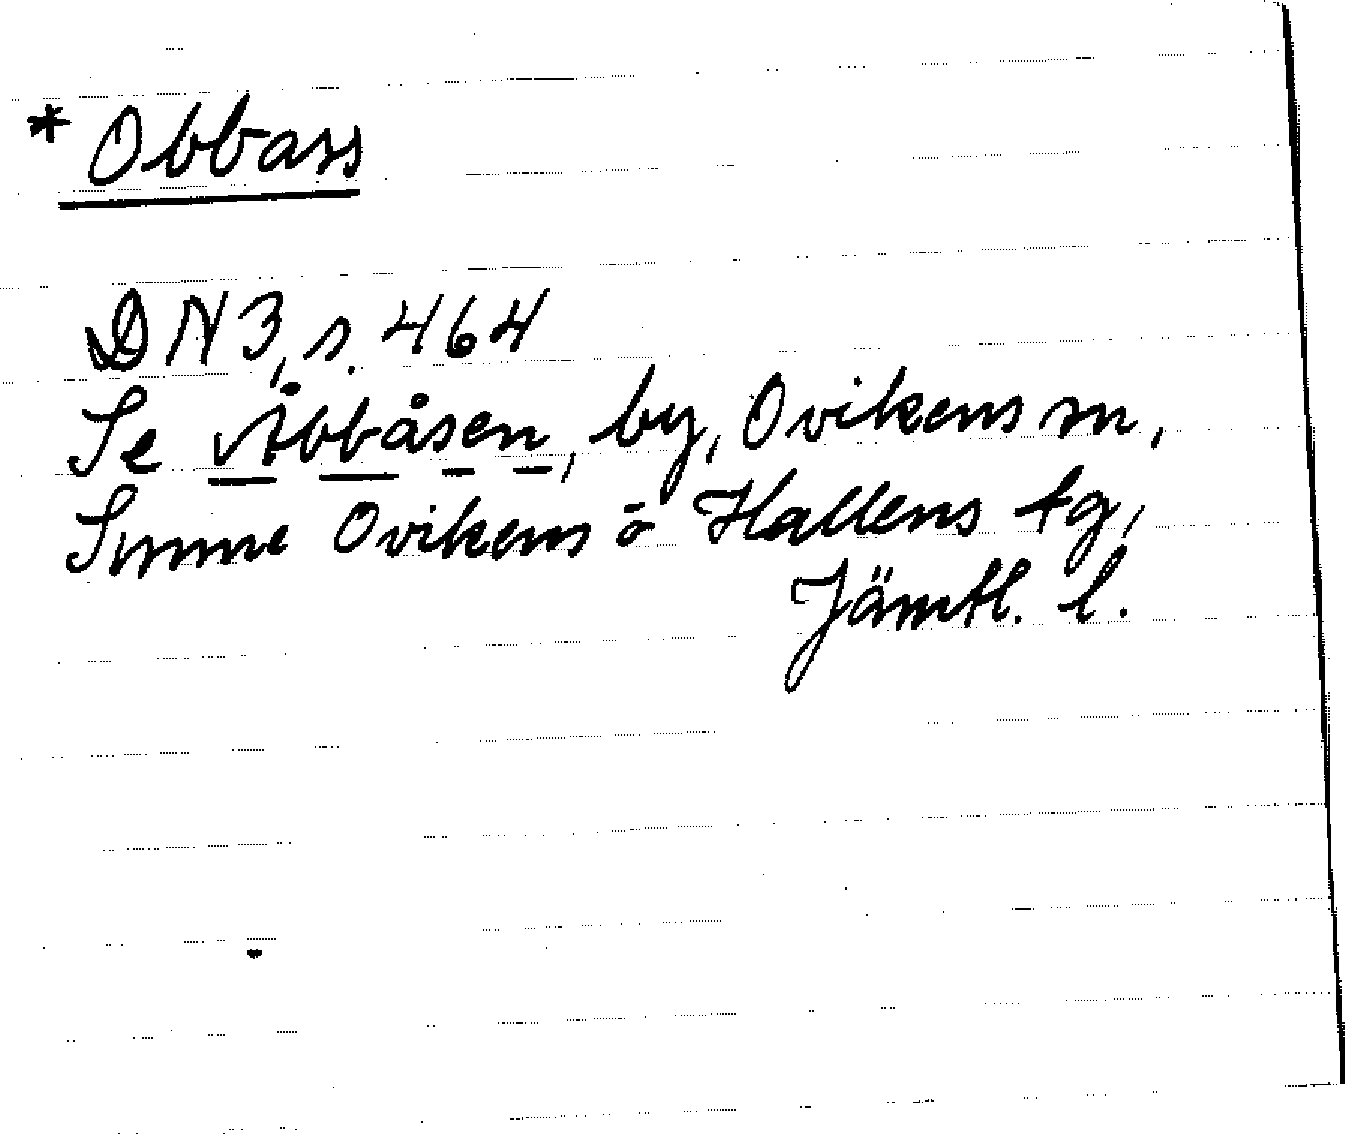 * Obbass
DN 3, s. 464
Se Åbbåsen, by, Ovikens sn,
Sunne Ovikens o Hallens tg,
Jämtl. l.